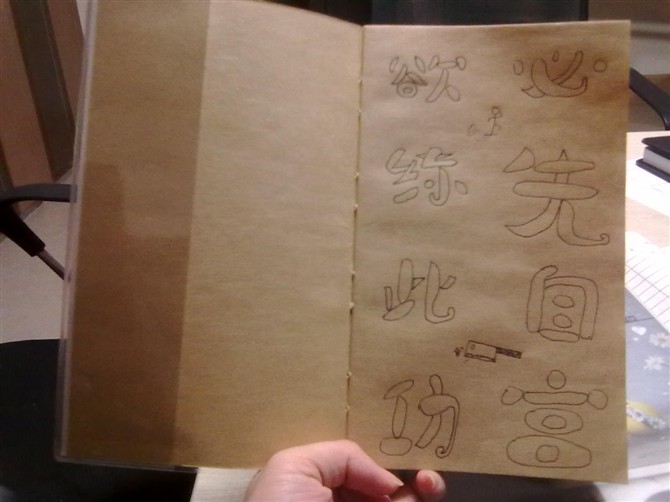 欲练此功
必先自宫